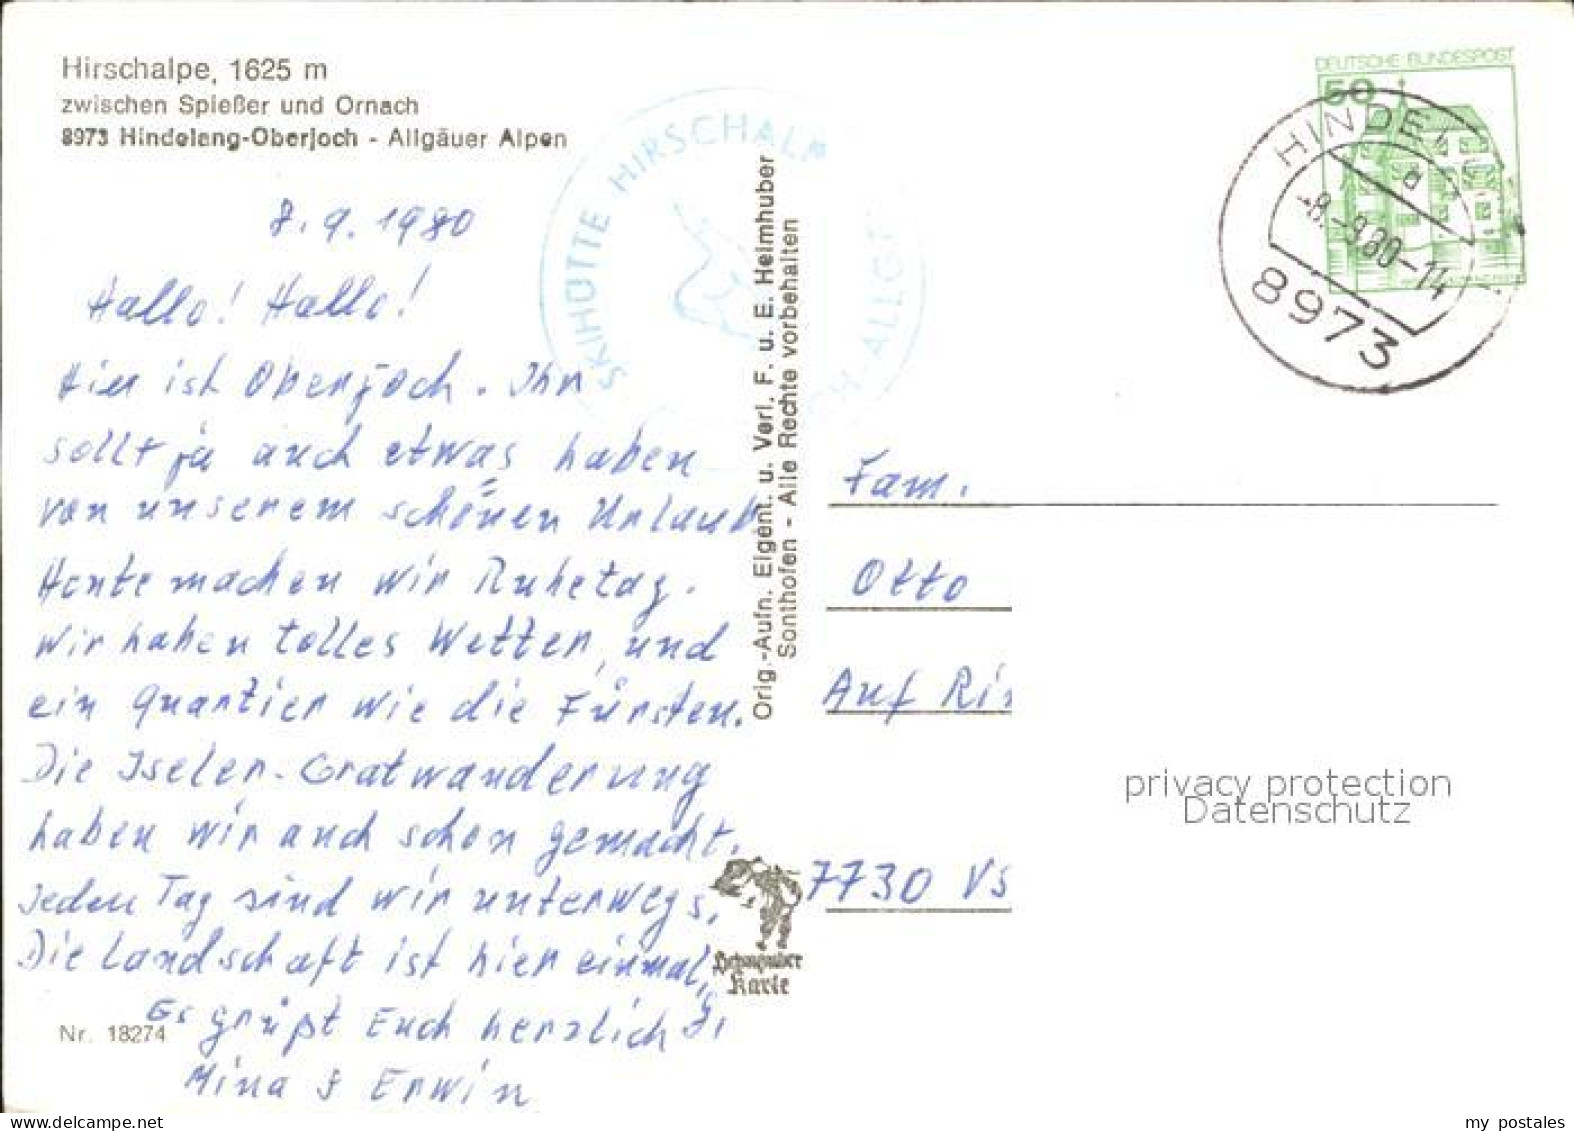 Hirschalpe, 1625 m
zwischen Spießer und Ornach
8973 Hindelang-Oberjoch - Allgäuer Alpen
8.9.1980
Hallo! Hallo!
Hier ist Oberjoch. Ihr
sollt ja auch etwas haben
von unserem schönen Urlaub
Heute machen wir Ruhetag.
Wir haben tolles Wetter, und
ein Quartier wie die Fürsten.
Die Iseler-Gratwanderung
haben wir auch schon gemacht.
Jeden Tag sind wir unterwegs.
Die Landschaft ist hier einmalig
Es grüßt Euch herzlich
Mina & Erwin
Nr. 18274
SKIHÜTTE HIRSCHALP
ALLG
Orig.-Aufn. Eigent. u. Verl. F. u. E. Heimhuber
Sonthofen - Alle Rechte vorbehalten
Heimhuber
Karte
DEUTSCHE BUNDESPOST
50
HINDEL
a
-8.-9.80-14
8973
Fam.
Otto
Auf Ri
7730 VS
privacy protection
Datenschutz
www.delcampe.net
my postales